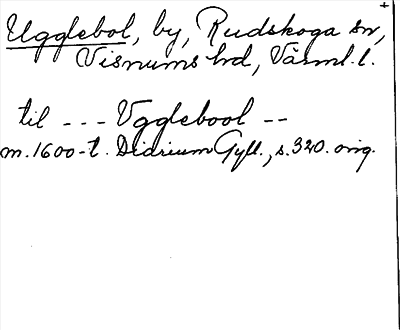 Ugglebol, by, Rudskoga sn,
Visnums hd, Värml. l.
til --- Vgglebool --
m. 1600-t. Diarium Gyll., s. 320. orig.